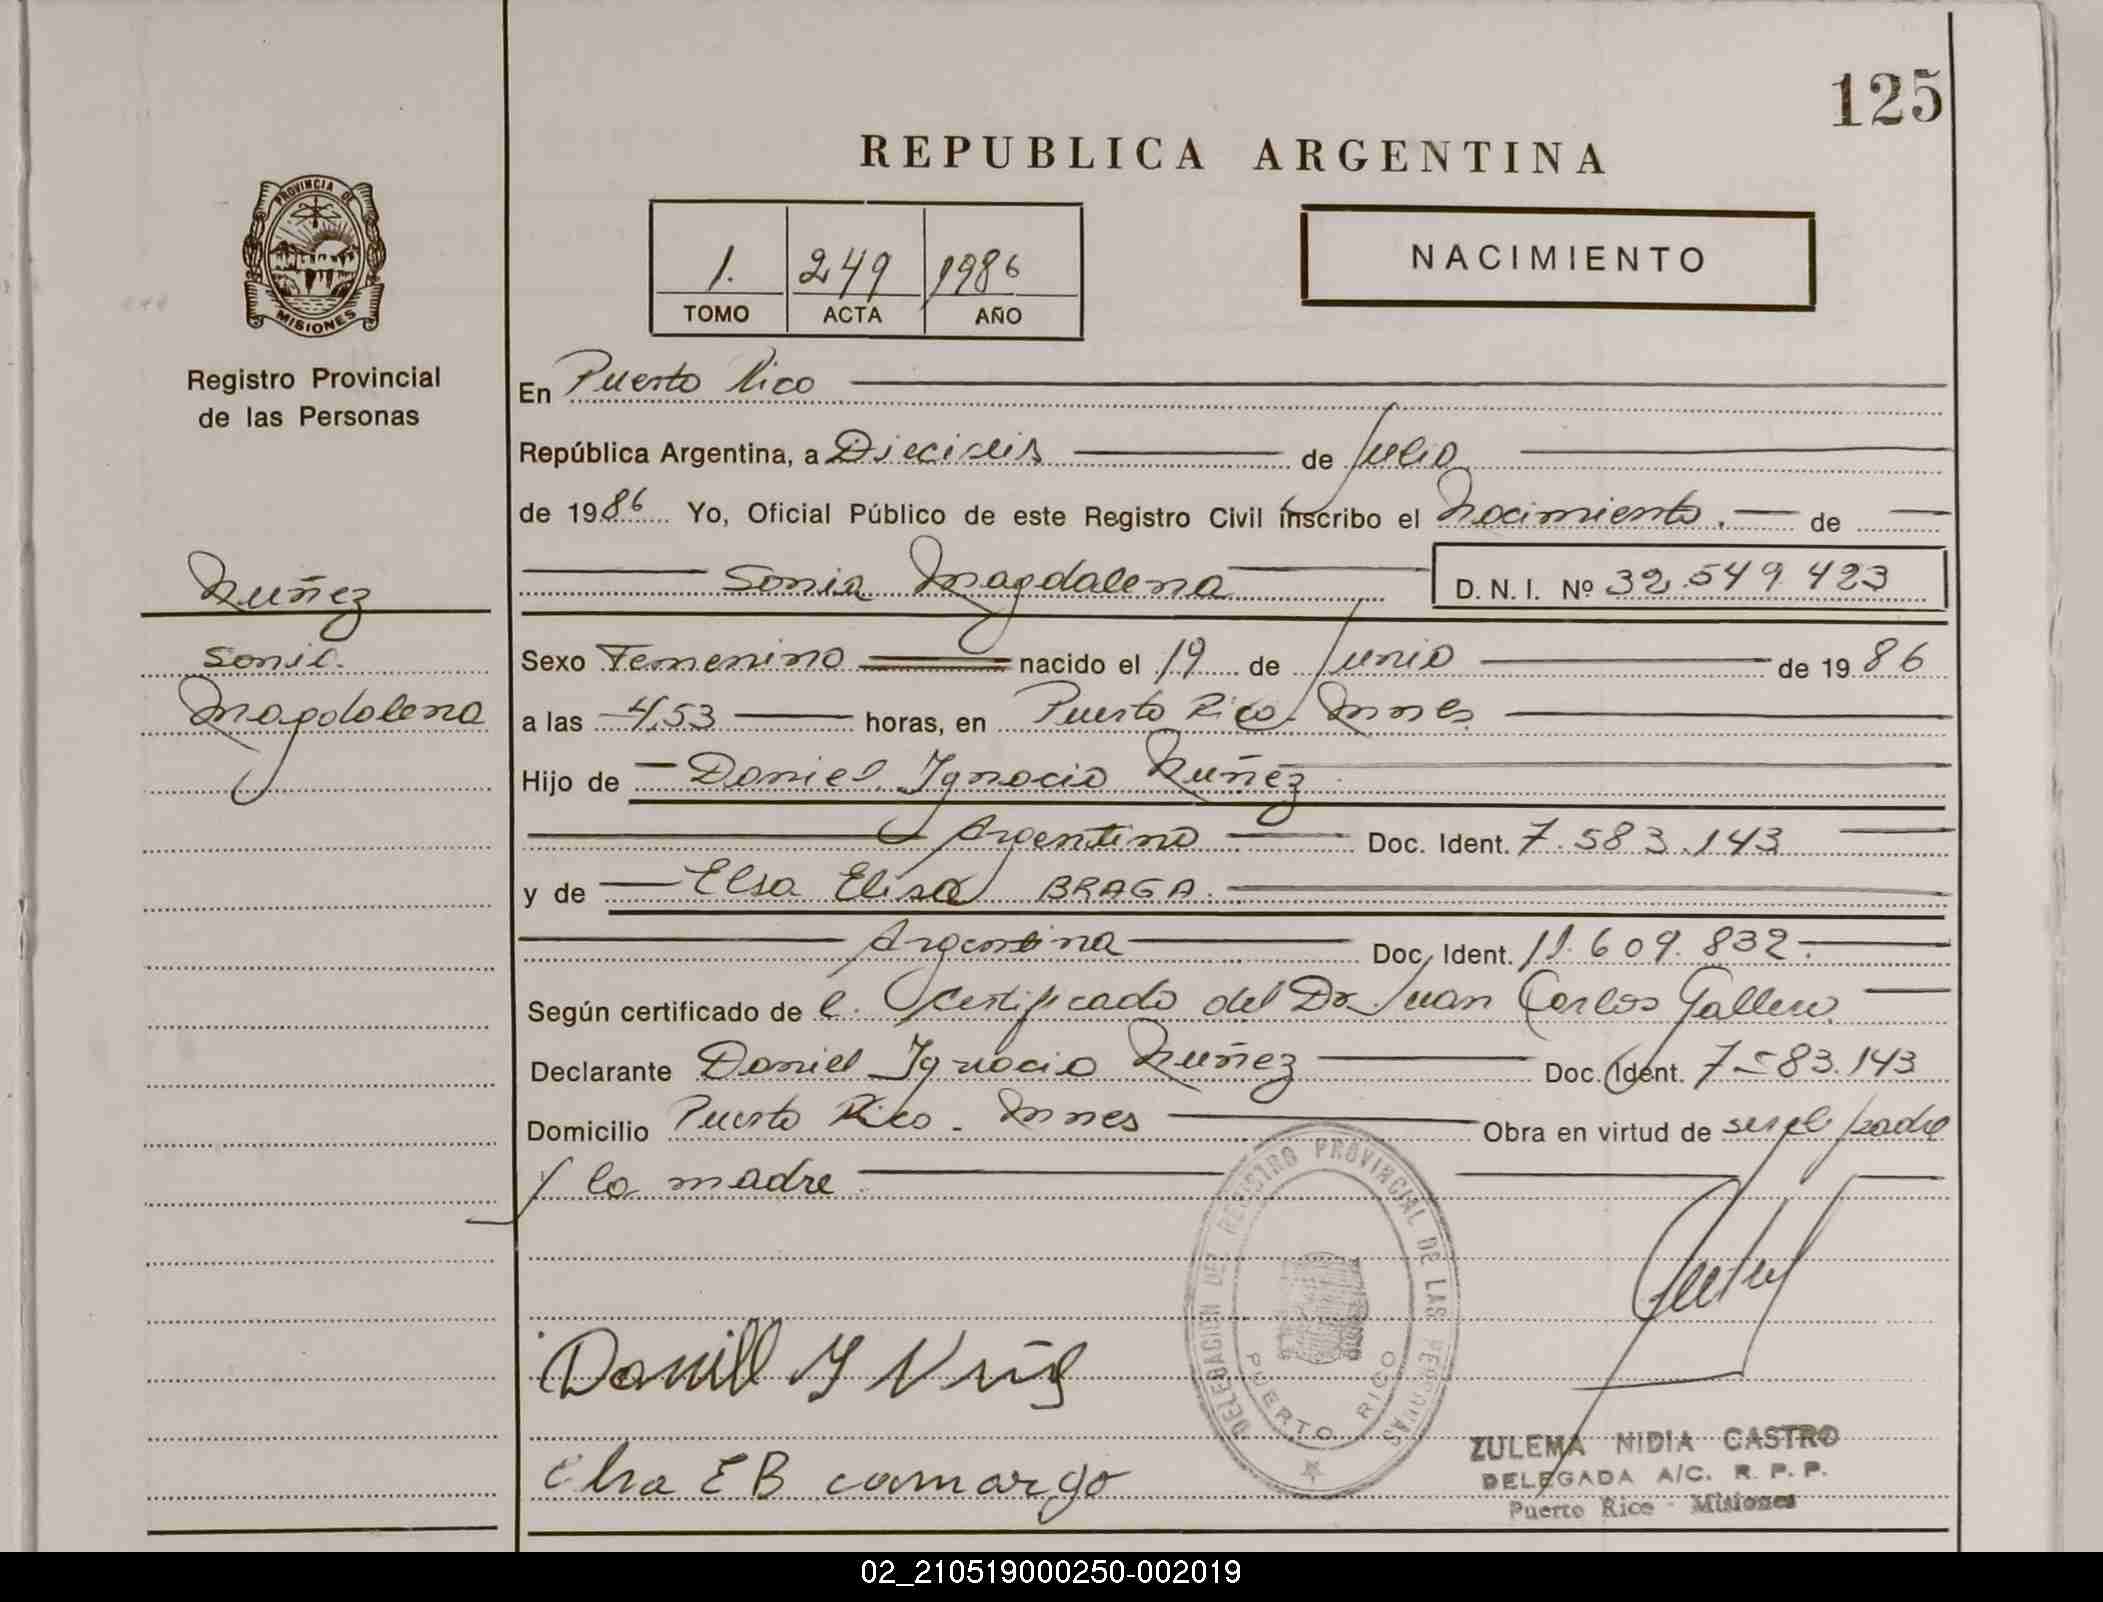 125
REPUBLICA ARGENTINA
PROVINCIA DE
MISIONES
1. 249 1986
TOMO ACTA AÑO
NACIMIENTO
Registro Provincial
de las Personas
Nuñez
Sonia
Magdalena
En Puerto Rico
República Argentina, a Dieciseis de Julio
de 1986 Yo, Oficial Público de este Registro Civil inscribo el Nacimiento. de
Sonia Magdalena D. N. I. Nº 32.549.423
Sexo Femenino nacido el 19 de Junio de 1986
a las 4,53 horas, en Puerto Rico. Mnes
Hijo de Daniel Ignacio Nuñez
Argentino Doc. Ident. 7.583.143
y de Elsa Elisa BRAGA.
Argentina Doc. Ident. 11.609.832.
Según certificado de e. Certificado del Dr. Juan Carlos Gallero
Declarante Daniel Ignacio Nuñez Doc. Ident. 7583.143
Domicilio Puerto Rico - Mnes Obra en virtud de ser el padre
y la madre
DELEGACION DEL REGISTRO PROVINCIAL DE LAS PERSONAS
PUERTO RICO
Daniel I Nuñez
Elsa E B camargo
ZULEMA NIDIA CASTRO
DELEGADA A/C. R. P. P.
Puerto Rico - Misiones
02_210519000250-002019